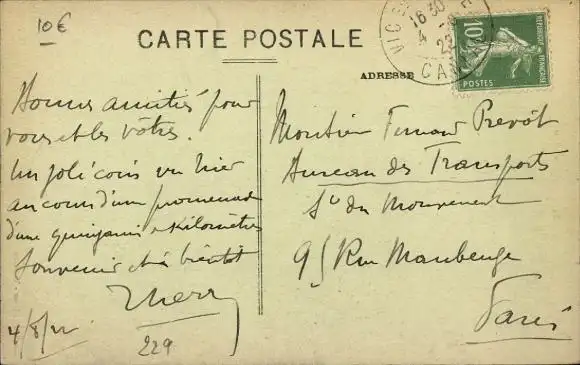 10€
CARTE POSTALE
ADRESSE
VIC
16 30
4
22
CANTAL
10c
RÉPUBLIQUE FRANÇAISE
POSTES
Bonnes amitiés pour
vous et les vôtres.
Un joli coin vu hier
au cours d'une promenade
d'une quinzaine kilomètres
Souvenir et à bientôt
4/8/22
229
Monsieur Fernand Prevôt
Bureau des Transports
Sce du Mouvement
95 Rue Maubeuge
Paris